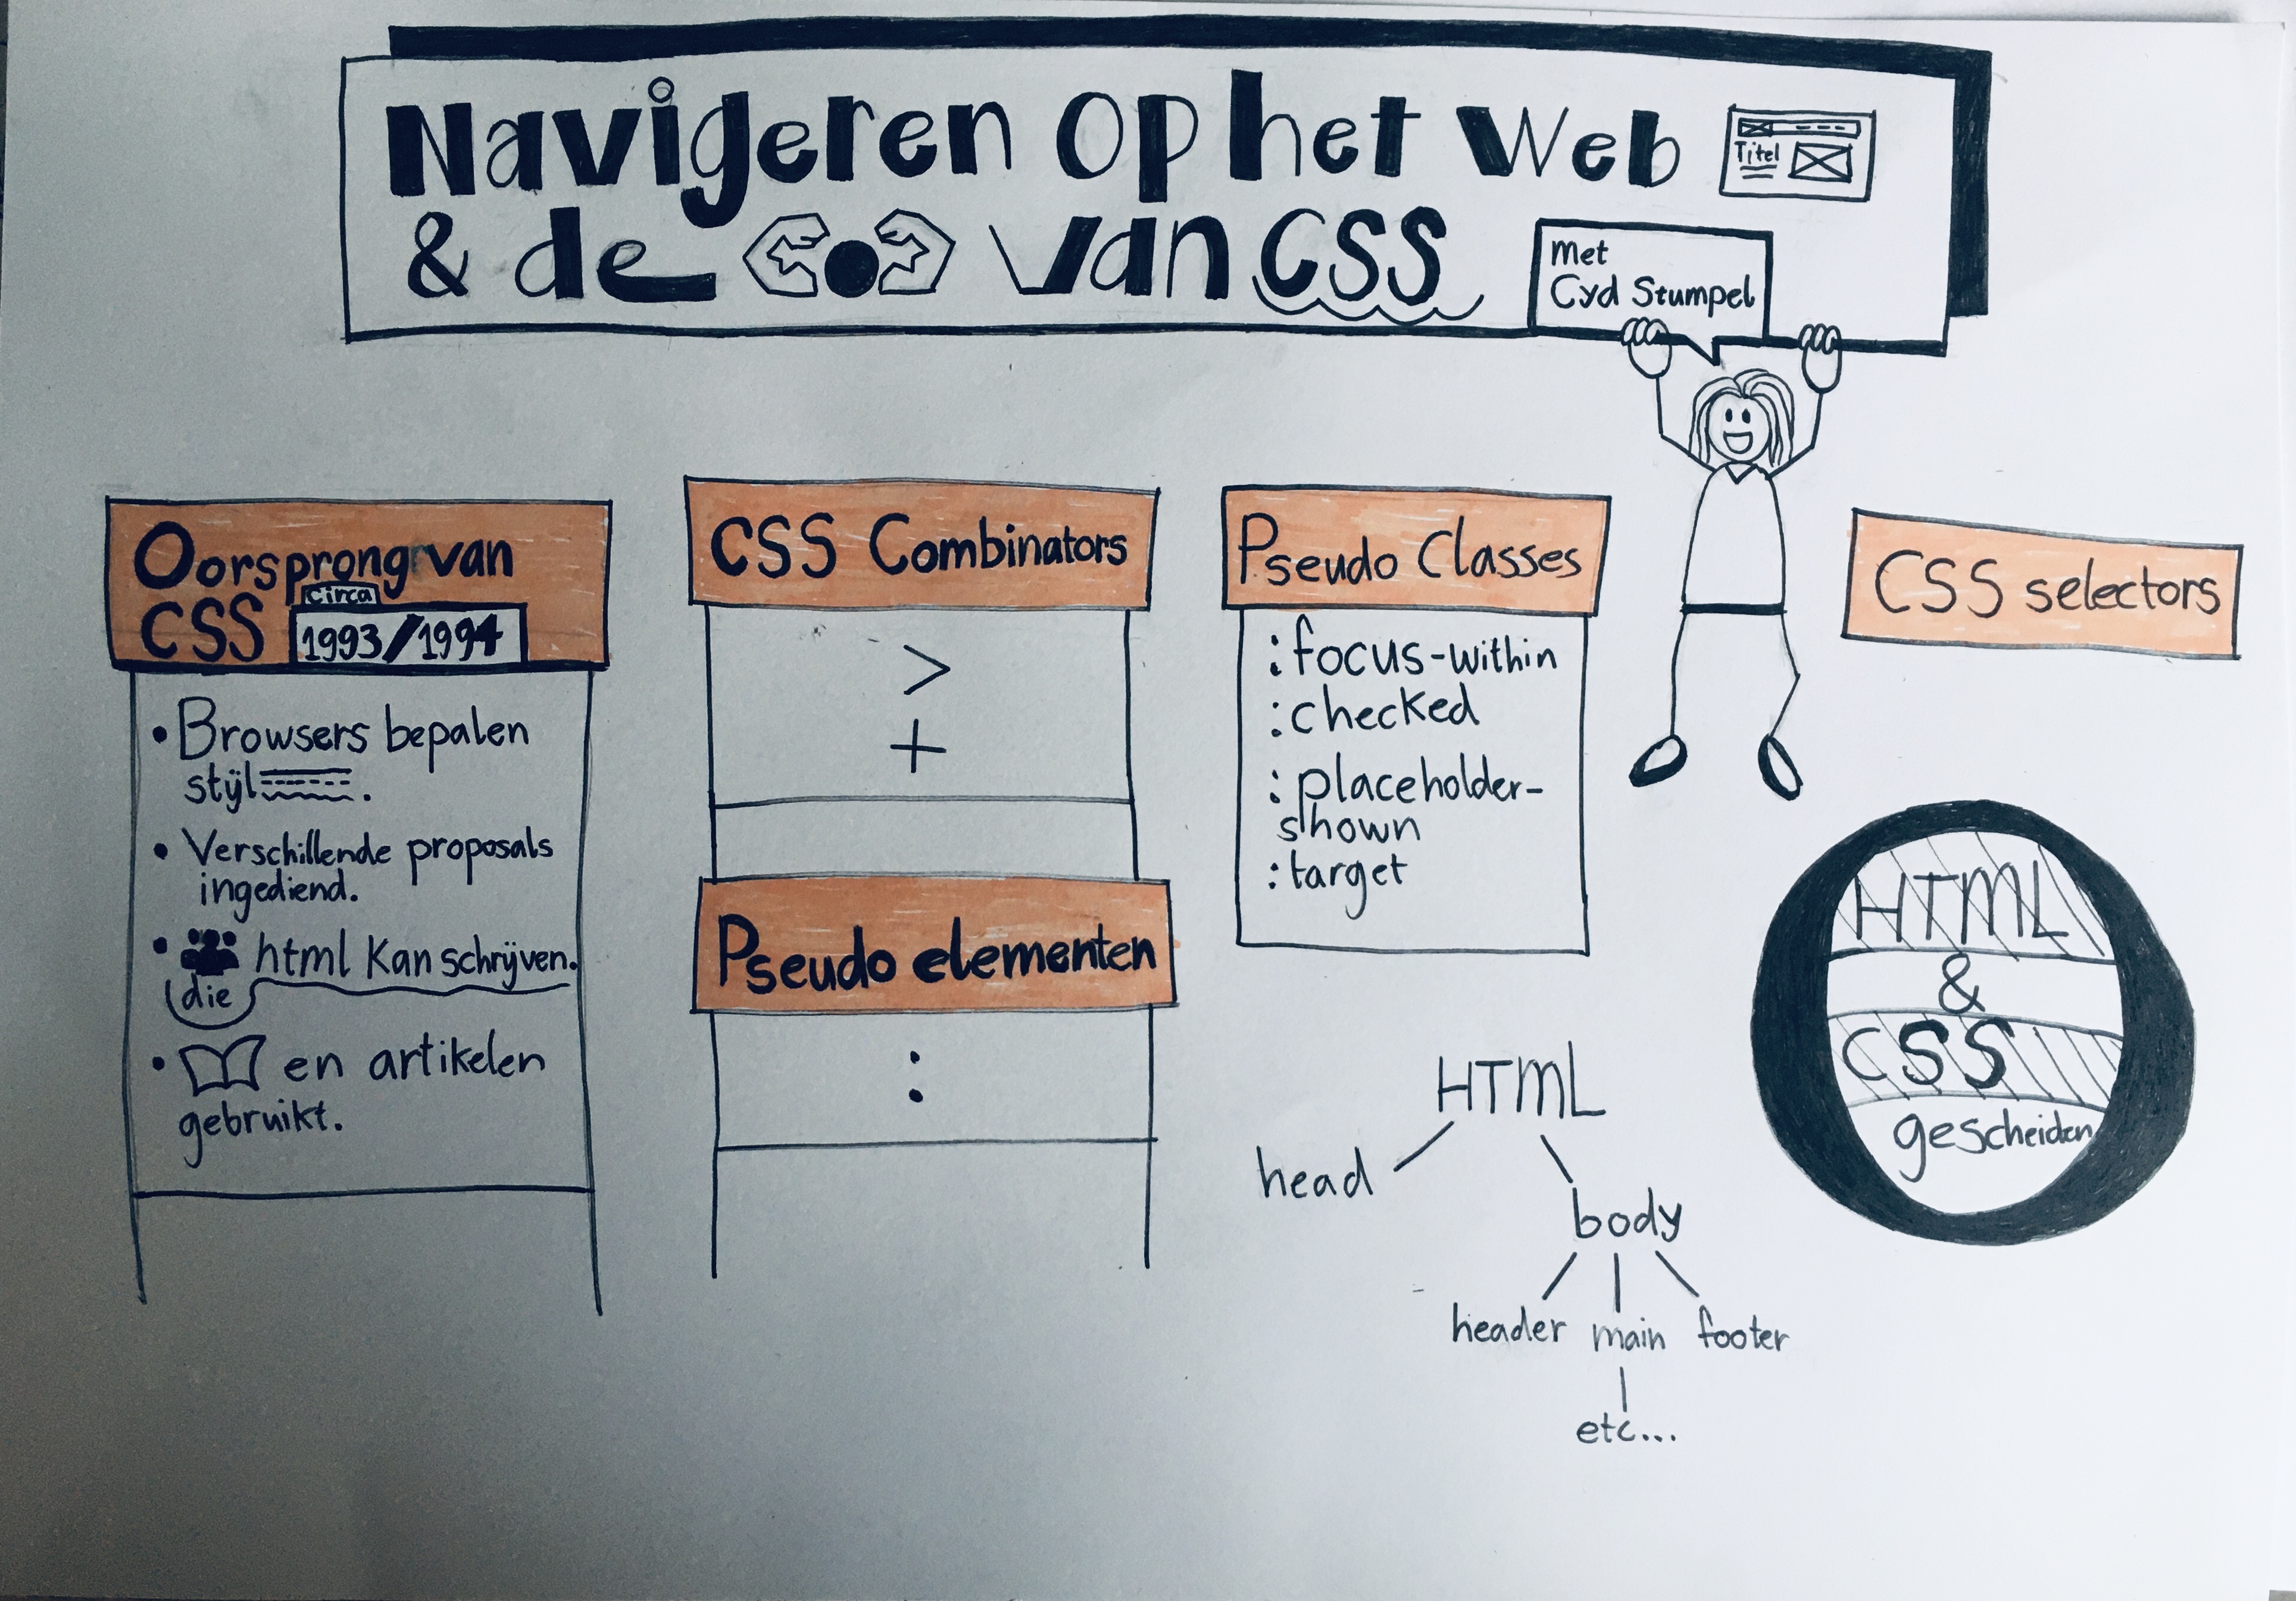 Navigeren op het Web
Titel
& de van CSS
met
Cyd Stumpel
Oorsprong van
CSS
circa
1993/1994
• Browsers bepalen
stijl .
• Verschillende proposals
ingediend.
• html kan schrijven.
die
• en artikelen
gebruikt.
CSS Combinators
>
+
Pseudo elementen
:
Pseudo Classes
:focus-within
:checked
:placeholder-
shown
:target
CSS selectors
HTML
&
CSS
gescheiden
HTML
head
body
header main footer
etc...